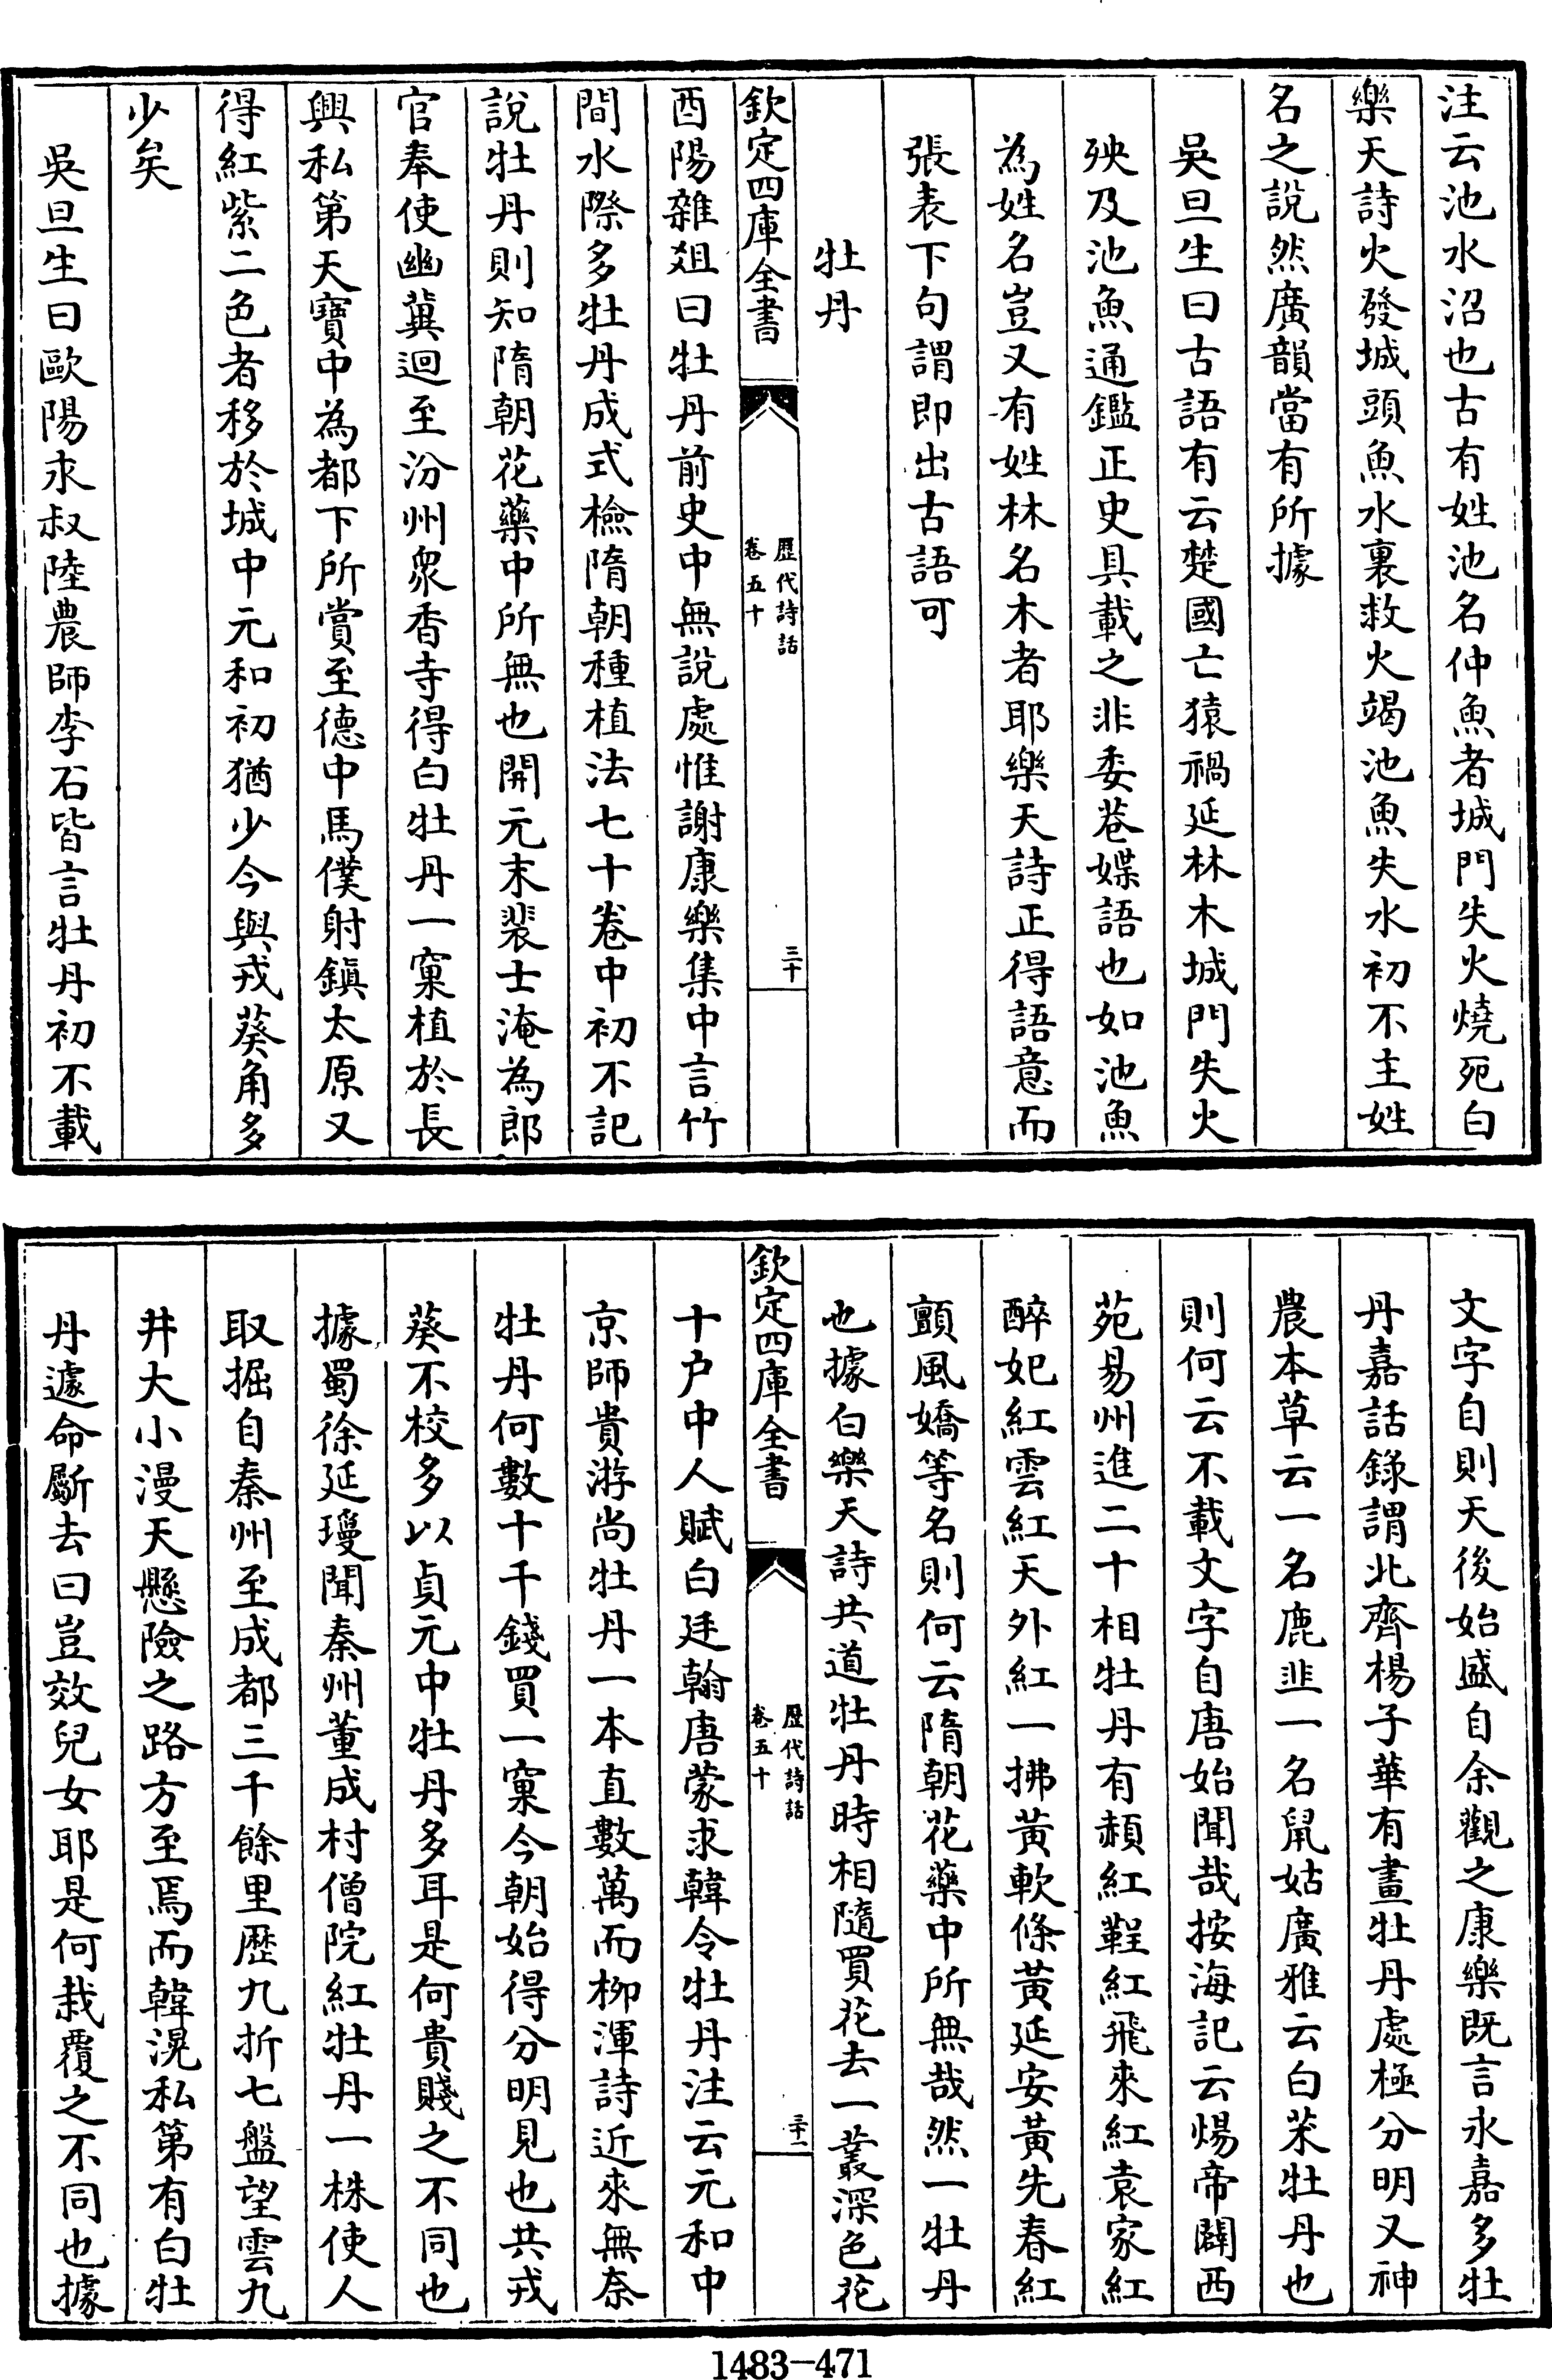 注云池水沼也古有姓池名仲魚者城門失火燒死白
樂天詩火發城頭魚水裏救火竭池魚失水初不主姓
名之說然廣韻當有所據
吳旦生曰古語有云楚國亡猿禍延林木城門失火
殃及池魚通鑑正史具載之非委巷媟語也如池魚
為姓名豈又有姓林名木者耶樂天詩正得語意而
張表下句謂即出古語可
牡丹
欽定四庫全書
歷代詩話
卷五十
三十
酉陽雜爼曰牡丹前史中無說處惟謝康樂集中言竹
間水際多牡丹成式檢隋朝種植法七十卷中初不記
說牡丹則知隋朝花藥中所無也開元末裴士淹為郎
官奉使幽冀迴至汾州衆香寺得白牡丹一窠植於長
興私第天寶中為都下所賞至德中馬僕射鎮太原又
得紅紫二色者移於城中元和初猶少今與戎葵角多
少矣
吳旦生曰歐陽永叔陸農師李石皆言牡丹初不載
文字自則天後始盛自余觀之康樂既言永嘉多牡
丹嘉話錄謂北齊楊子華有畫牡丹處極分明又神
農本草云一名鹿韭一名鼠姑廣雅云白茮牡丹也
則何云不載文字自唐始聞哉按海記云煬帝闢西
苑易州進二十相牡丹有赬紅鞓紅飛來紅袁家紅
醉妃紅雲紅天外紅一拂黃軟條黃延安黃先春紅
顫風嬌等名則何云隋朝花藥中所無哉然一牡丹
也據白樂天詩共道牡丹時相隨買花去一叢深色花
欽定四庫全書
歷代詩話
卷五十
三十一
十户中人賦白廷翰唐蒙求韓令牡丹注云元和中
京師貴游尚牡丹一本直數萬而栁渾詩近來無奈
牡丹何數十千錢買一窠今朝始得分明見也共戎
葵不校多以貞元中牡丹多耳是何貴賤之不同也
據蜀徐延瓊聞秦州董成村僧院紅牡丹一株使人
取掘自秦州至成都三千餘里歷九折七盤望雲九
井大小漫天懸險之路方至焉而韓滉私第有白牡
丹遽命斸去曰豈效兒女耶是何栽覆之不同也據
1483-471